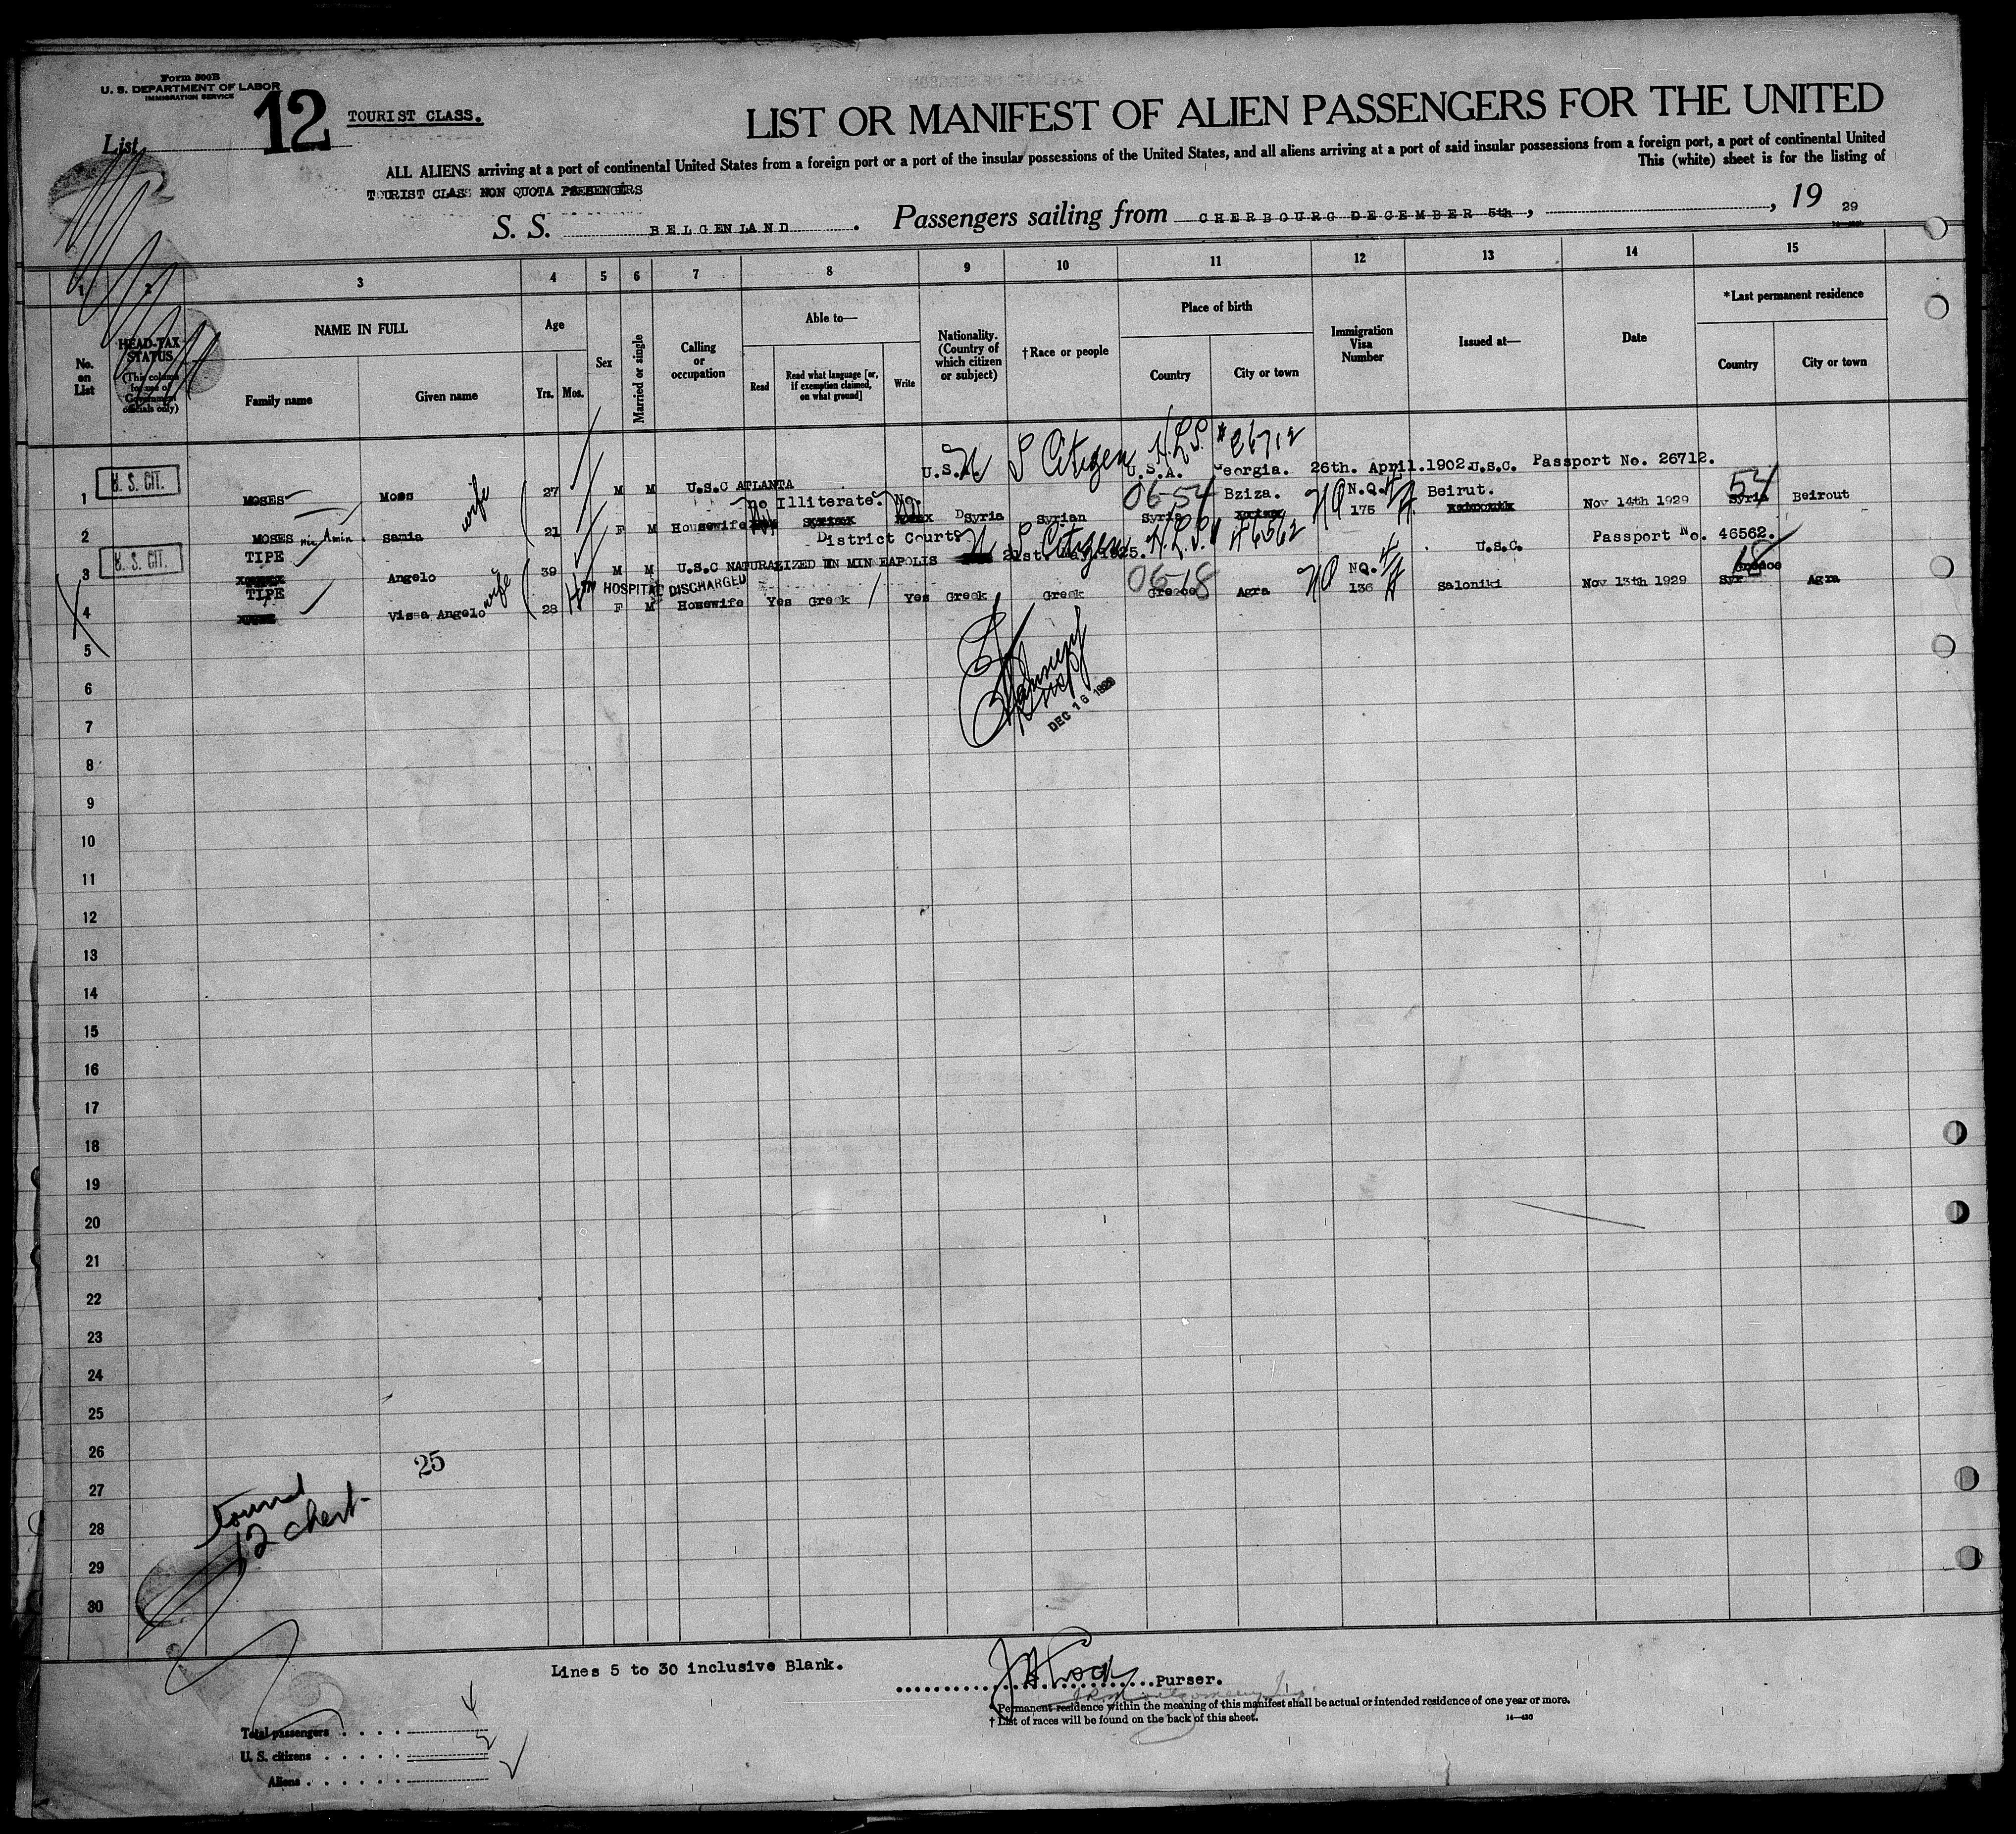 Form 500B
U. S. DEPARTMENT OF LABOR
IMMIGRATION SERVICE
List 12
TOURIST CLASS.
LIST OR MANIFEST OF ALIEN PASSENGERS FOR THE UNITED
ALL ALIENS arriving at a port of continental United States from a foreign port or a port of the insular possessions of the United States, and all aliens arriving at a port of said insular possessions from a foreign port, a port of continental United
This (white) sheet is for the listing of
TOURIST CLASS NON QUOTA
S. S. BELGENLAND. Passengers sailing from CHERBOURG DECEMBER 5th, , 19 29
1 2 3 4 5 6 7 8 9 10 11 12 13 14 15
No. on List
HEAD-TAX STATUS (This column for use of Government officials only)
NAME IN FULL
Family name
Given name
Age
Yrs. Mos.
Sex
Married or single
Calling or occupation
Able to—
Read
Read what language [or, if exemption claimed, on what ground]
Write
Nationality. (Country of which citizen or subject)
†Race or people
Place of birth
Country
City or town
Immigration Visa Number
Issued at—
Date
*Last permanent residence
Country
City or town
U S Citizen H.L.S. # 26712
U.S.A. U.S.A. Georgia. 26th. April.1902. U.S.C. Passport No. 26712.
1 U. S. CIT. MOSES Moses 27 M M U.S.C ATLANTA
wife
no Illiterate. No. 06-54 Bziza. N.Q. Beirut. 54
2 MOSES Amin Samia 21 F M Housewife Syria Syrian Syria NQ 175 Nov 14th 1929 Syria Beirout
District Court U S Citizen H.L.S. # 46562
U.S.C. Passport No. 46562.
3 U. S. CIT. TIPE Angelo 39 M M U.S.C NATURALIZED IN MINNEAPOLIS 21st. May.1925.
wife
HOSPITAL DISCHARGED
06-18 NQ. 18
4 TIPE Vissa Angelo 28 F M Housewife Yes Greek Yes Greek Greek Greece Agra NQ 136 Saloniki Nov 13th 1929 Agra
5
DEC 16 1929
6
7
8
9
10
11
12
13
14
15
16
17
18
19
20
21
22
23
24
25
26
25
27
28
12 cher
29
30
Lines 5 to 30 inclusive Blank.
Purser.
*Permanent residence within the meaning of this manifest shall be actual or intended residence of one year or more.
† List of races will be found on the back of this sheet.
14—430
Total passengers . . . . 4
U. S. citizens . . . . . 2
Aliens . . . . . . 2